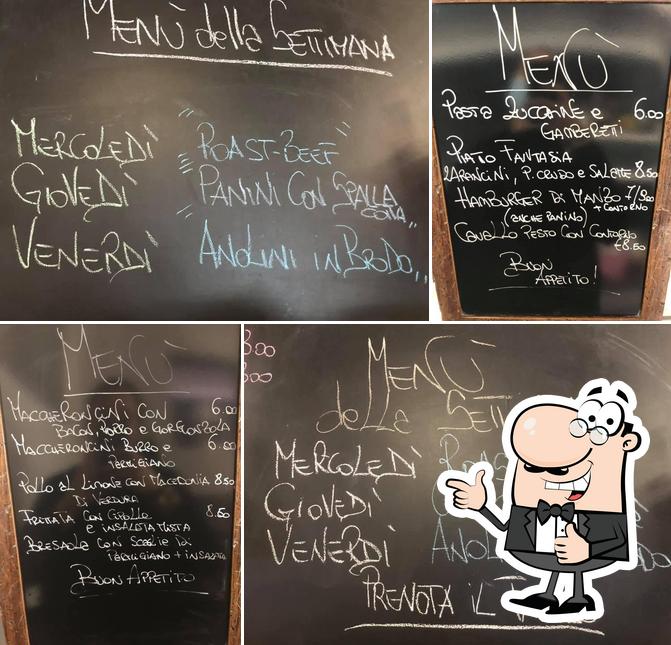 MENÙ della SETTIMANA
MERCOLEDÌ "ROAST-BEEF"
GIOVEDÌ "PANINI CON SPALLA
COTTA"
VENERDÌ "ANOLINI IN BRODO"
MENÙ
PASTA ZUCCHINE e 6.00
GAMBERETTI
PIATTO FANTASIA
2 ARANCINI, P. CRUDO e SALAME 8.50
HAMBURGER DI MANZO 7/9.00
+ CONTORNO
(ANCHE PANINO)
CAVALLO PESTO CON CONTORNO
€8.50
BUON
APPETITO!
MENÙ
MACCHERONCINI CON 6.00
BACON, PORRO e GORGONZOLA
MACCHERONCINI BURRO e 6.00
PARMIGIANO
POLLO AL LIMONE CON MACEDONIA 8.50
DI VERDURA
FRITTATA CON CIPOLLE 8.50
e INSALATA MISTA
BRESAOLA CON SCAGLIE DI
PARMIGIANO + INSALATA
BUON APPETITO
8.00
MENÙ
della SETT
MERCOLEDÌ ROAS
GIOVEDÌ
VENERDÌ ANOL
PRENOTA IL